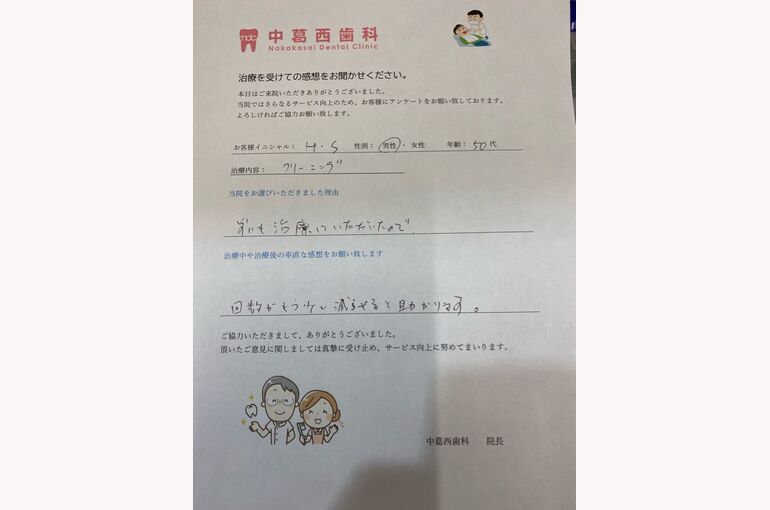 NDC 中葛西歯科
Nakakasai Dental Clinic
治療を受けての感想をお聞かせください。
本日はご来院いただきありがとうございました。
当院ではさらなるサービス向上のため、お客様にアンケートをお願い致しております。
よろしければご協力お願い致します。
お客様イニシャル： H・S 性別： 男性・女性 年齢： 50 代
治療内容： クリーニング
当院をお選びいただきました理由
前にも治療していただいたので
治療中や治療後の率直な感想をお願い致します
回数がもう少し減らせると助かります。
ご協力いただきまして、ありがとうございました。
頂いたご意見に関しましては真摯に受け止め、サービス向上に努めてまいります。
中葛西歯科 院長